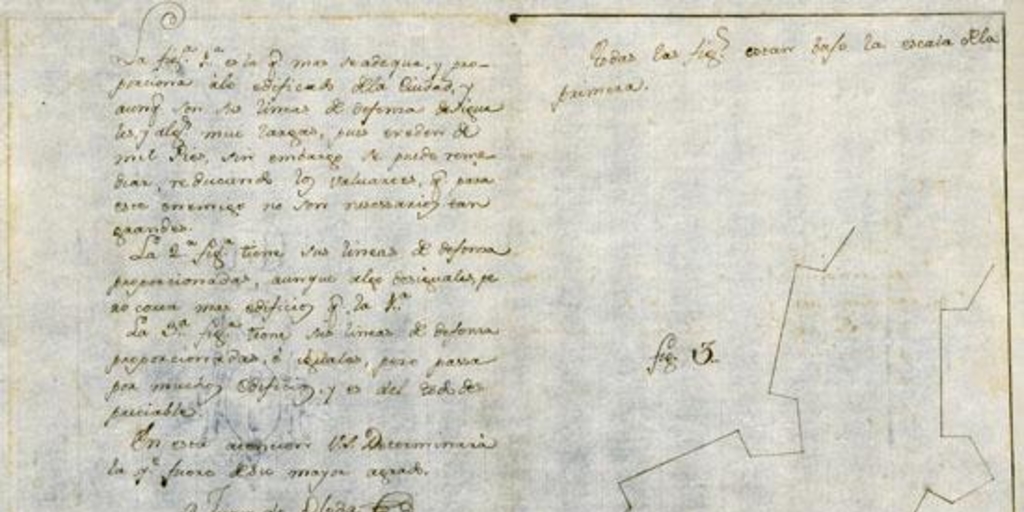 La fig.ª 1.ª es la q̃ mas se adequa, y pro-
porciona álo edificado dela Ciudad, y
aunq̃ son sus lineas de defensa desigua
les, y alg.s mui largas, pues exeden de
mil Pies, sin embargo se puede reme-
diar, reduciendo los valuartes, q̃ para
este enemigo no son necessarios tan
grandes.
La 2.ª fig.ª tiene sus lineas de defensa
proporcionadas, aunque algo desiguales, pe
ro coxta mas edificios q̃ la 1.ª
La 3.ª fig.ª tiene sus lineas de defensa
proporcionadas, é iguales, pero passa
por muchos edificios, y es del todo des
preciable.
En esta atencion V.S. Determinará
la q.e fuere desu mayor agrado.
Todas las fig.s estan bajo la escala dela
primera.
fig. 3.